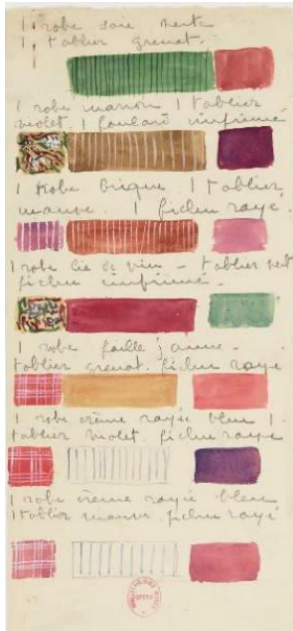 1 robe soie verte
1 tablier grenat.
1 robe marron 1 tablier
violet. 1 foulard imprimé
1 Robe brique 1 tablier
mauve. 1 fichu rayé.
1 robe lie de vin - tablier vert
fichu imprimé.
1 robe faille jaune.
tablier grenat. fichu rayé
1 robe crème rayée bleu 1
tablier violet. fichu rayé
1 robe crème rayée bleu
1 tablier mauve. fichu rayé
OPERA